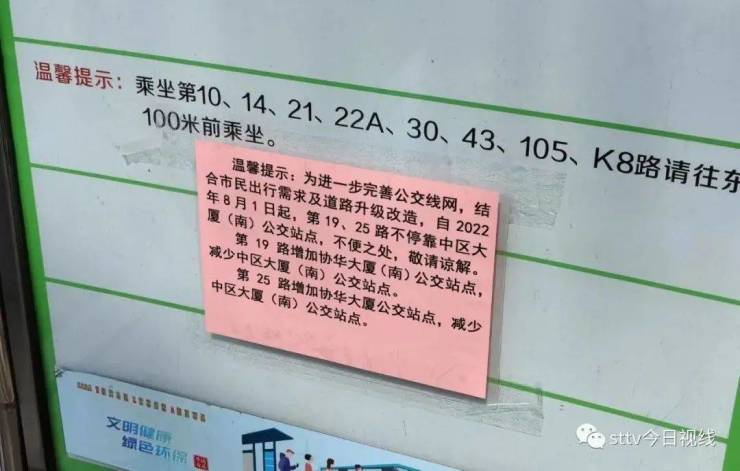 温馨提示：乘坐第10、14、21、22A、30、43、105、K8路请往东
100米前乘坐。
温馨提示：为进一步完善公交线网，结
合市民出行需求及道路升级改造，自 2022
年 8 月 1 日起，第 19、25 路不停靠中区大
厦（南）公交站点，不便之处，敬请谅解。
第 19 路增加协华大厦（南）公交站点，
减少中区大厦（南）公交站点。
第 25 路增加协华大厦公交站点，减少
中区大厦（南）公交站点。
文明健康
绿色环保
sttv今日视线